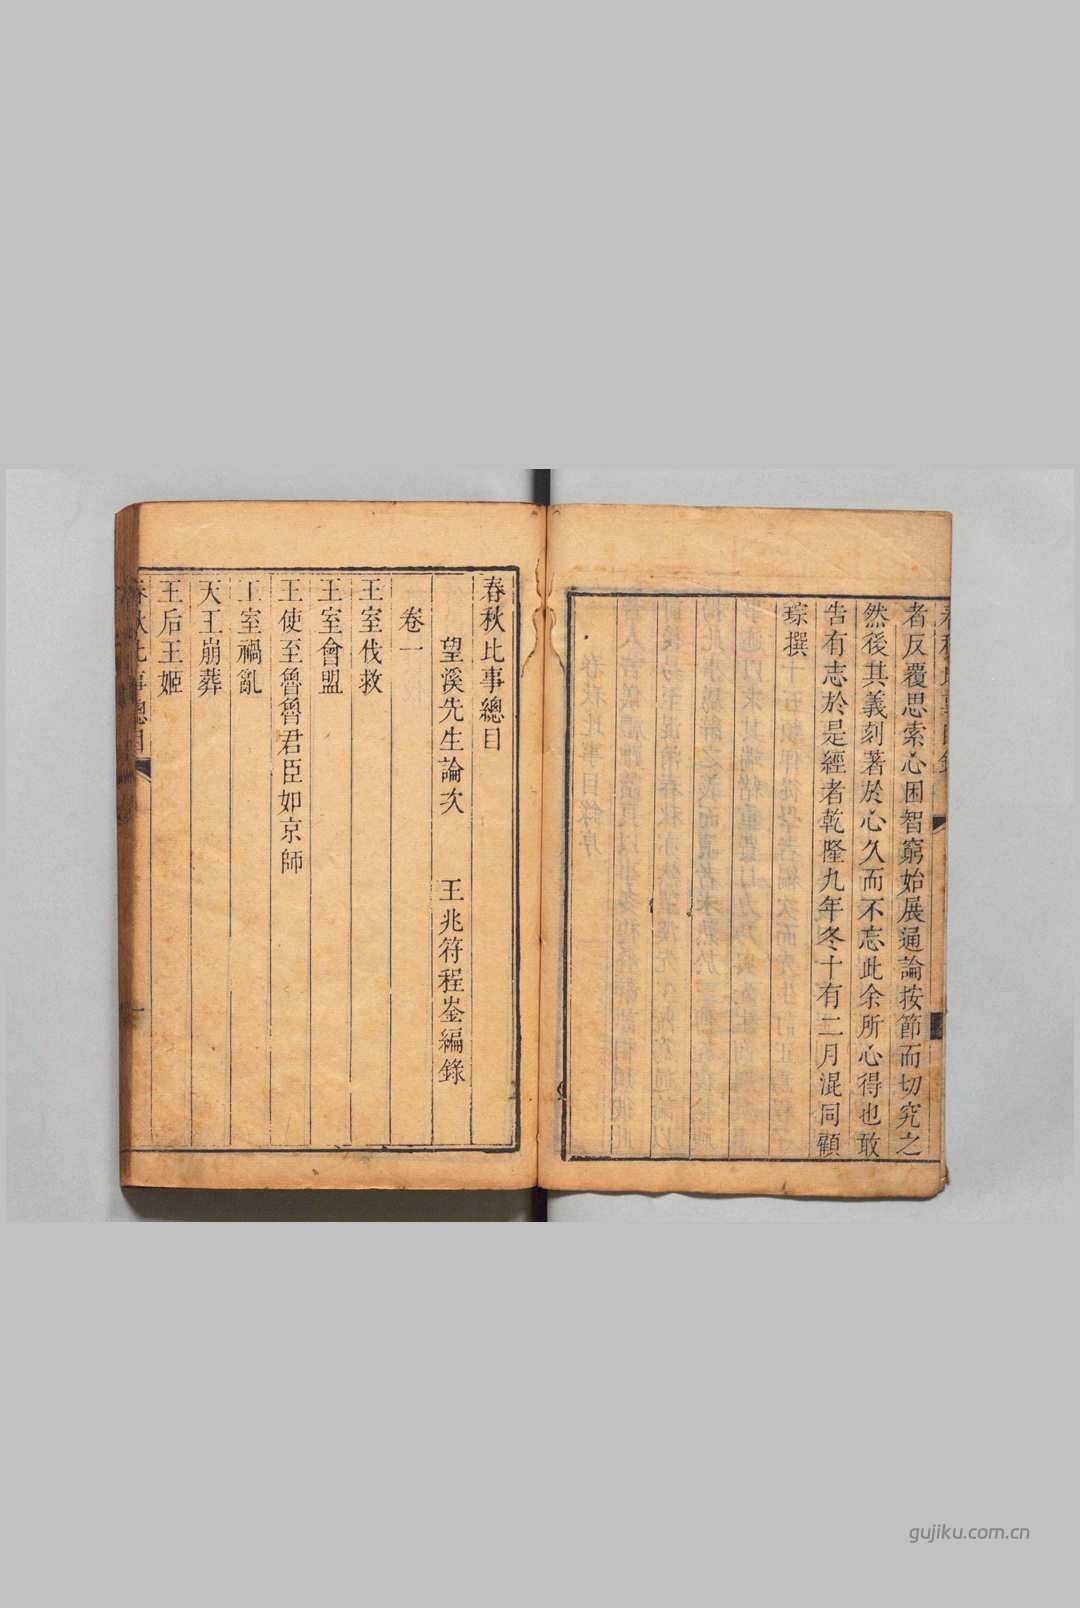 者反覆思索心困智窮始展通論按節而切究之
然後其義刻著於心久而不忘此余所心得也敢
告有志於是經者乾隆九年冬十有二月混同顧
琮撰
春秋比事總目
望溪先生論次 王兆符程崟編錄
卷一
王室伐救
王室會盟
王使至魯魯君臣如京師
王室禍亂
天王崩葬
王后王姬
春秋比事總目
一
gujiku.com.cn